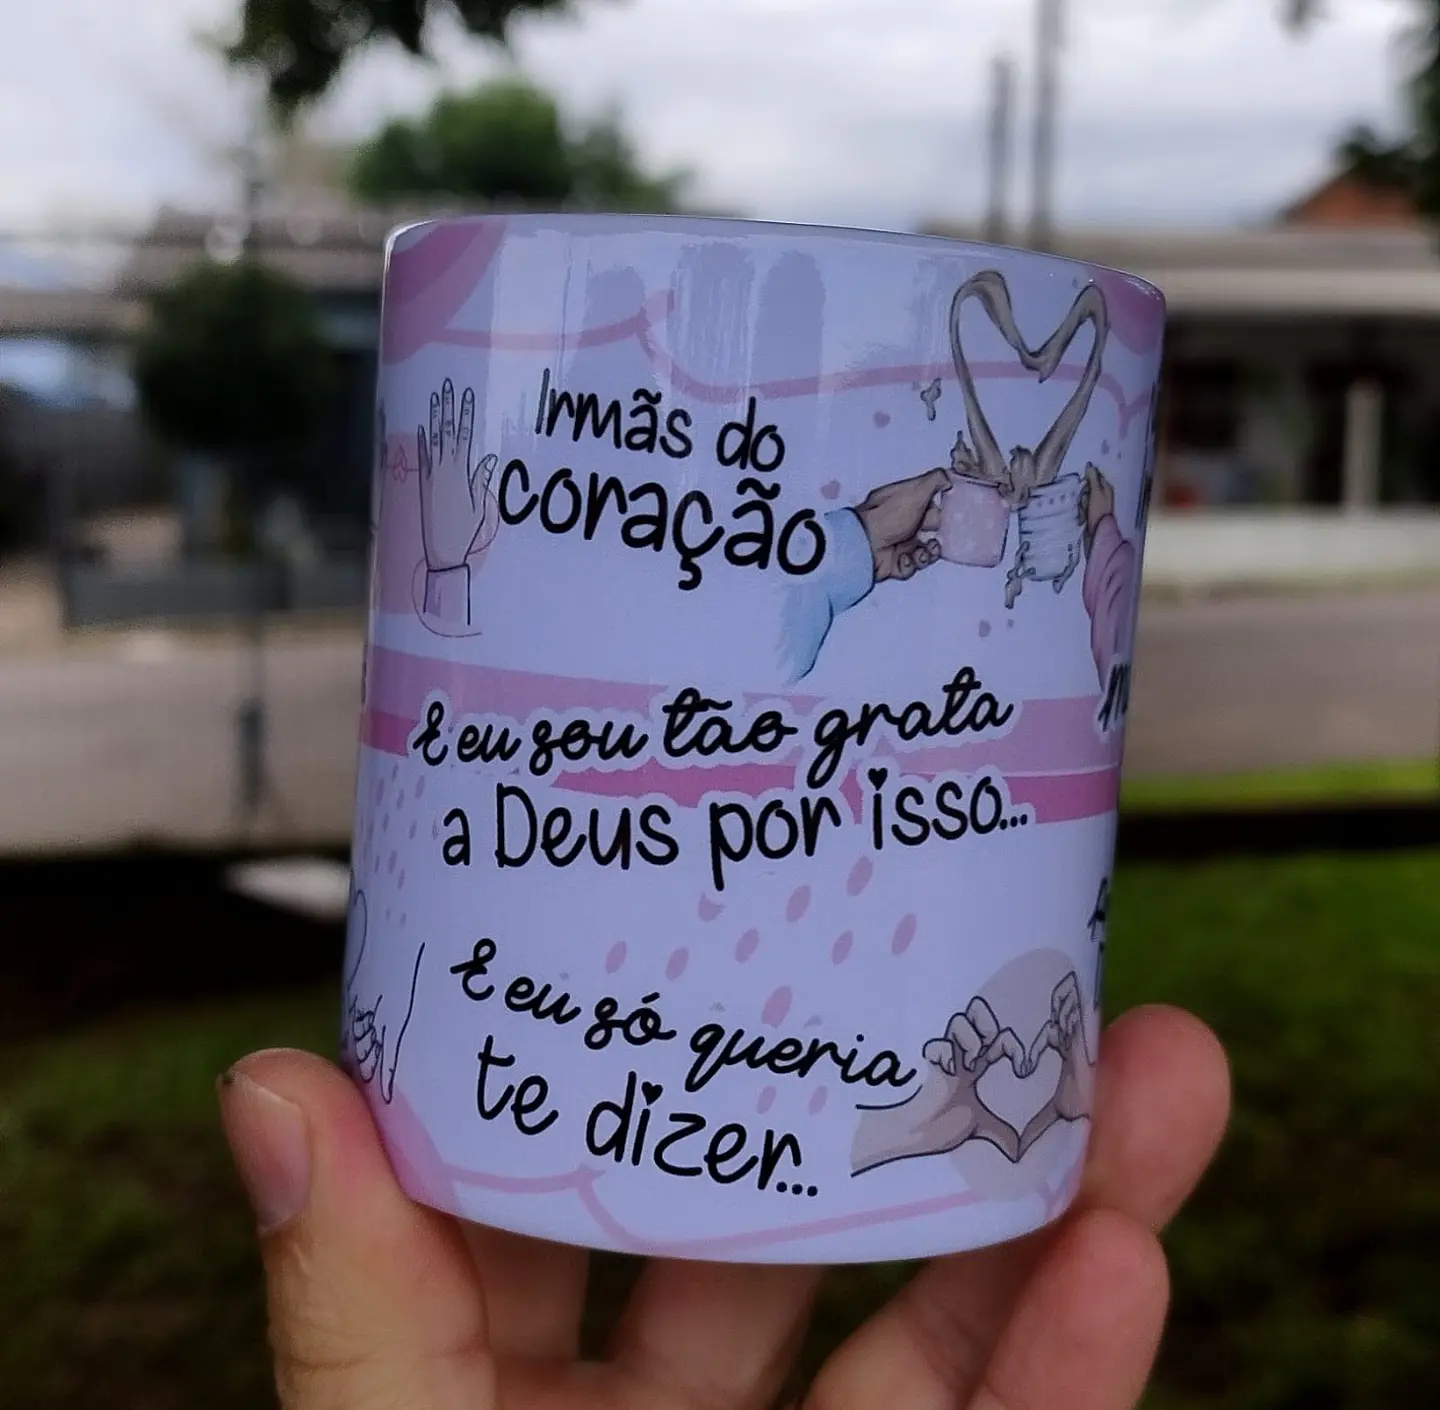 Irmãs do
coração
E eu sou tão grata
a Deus por isso...
E eu só queria
te dizer...